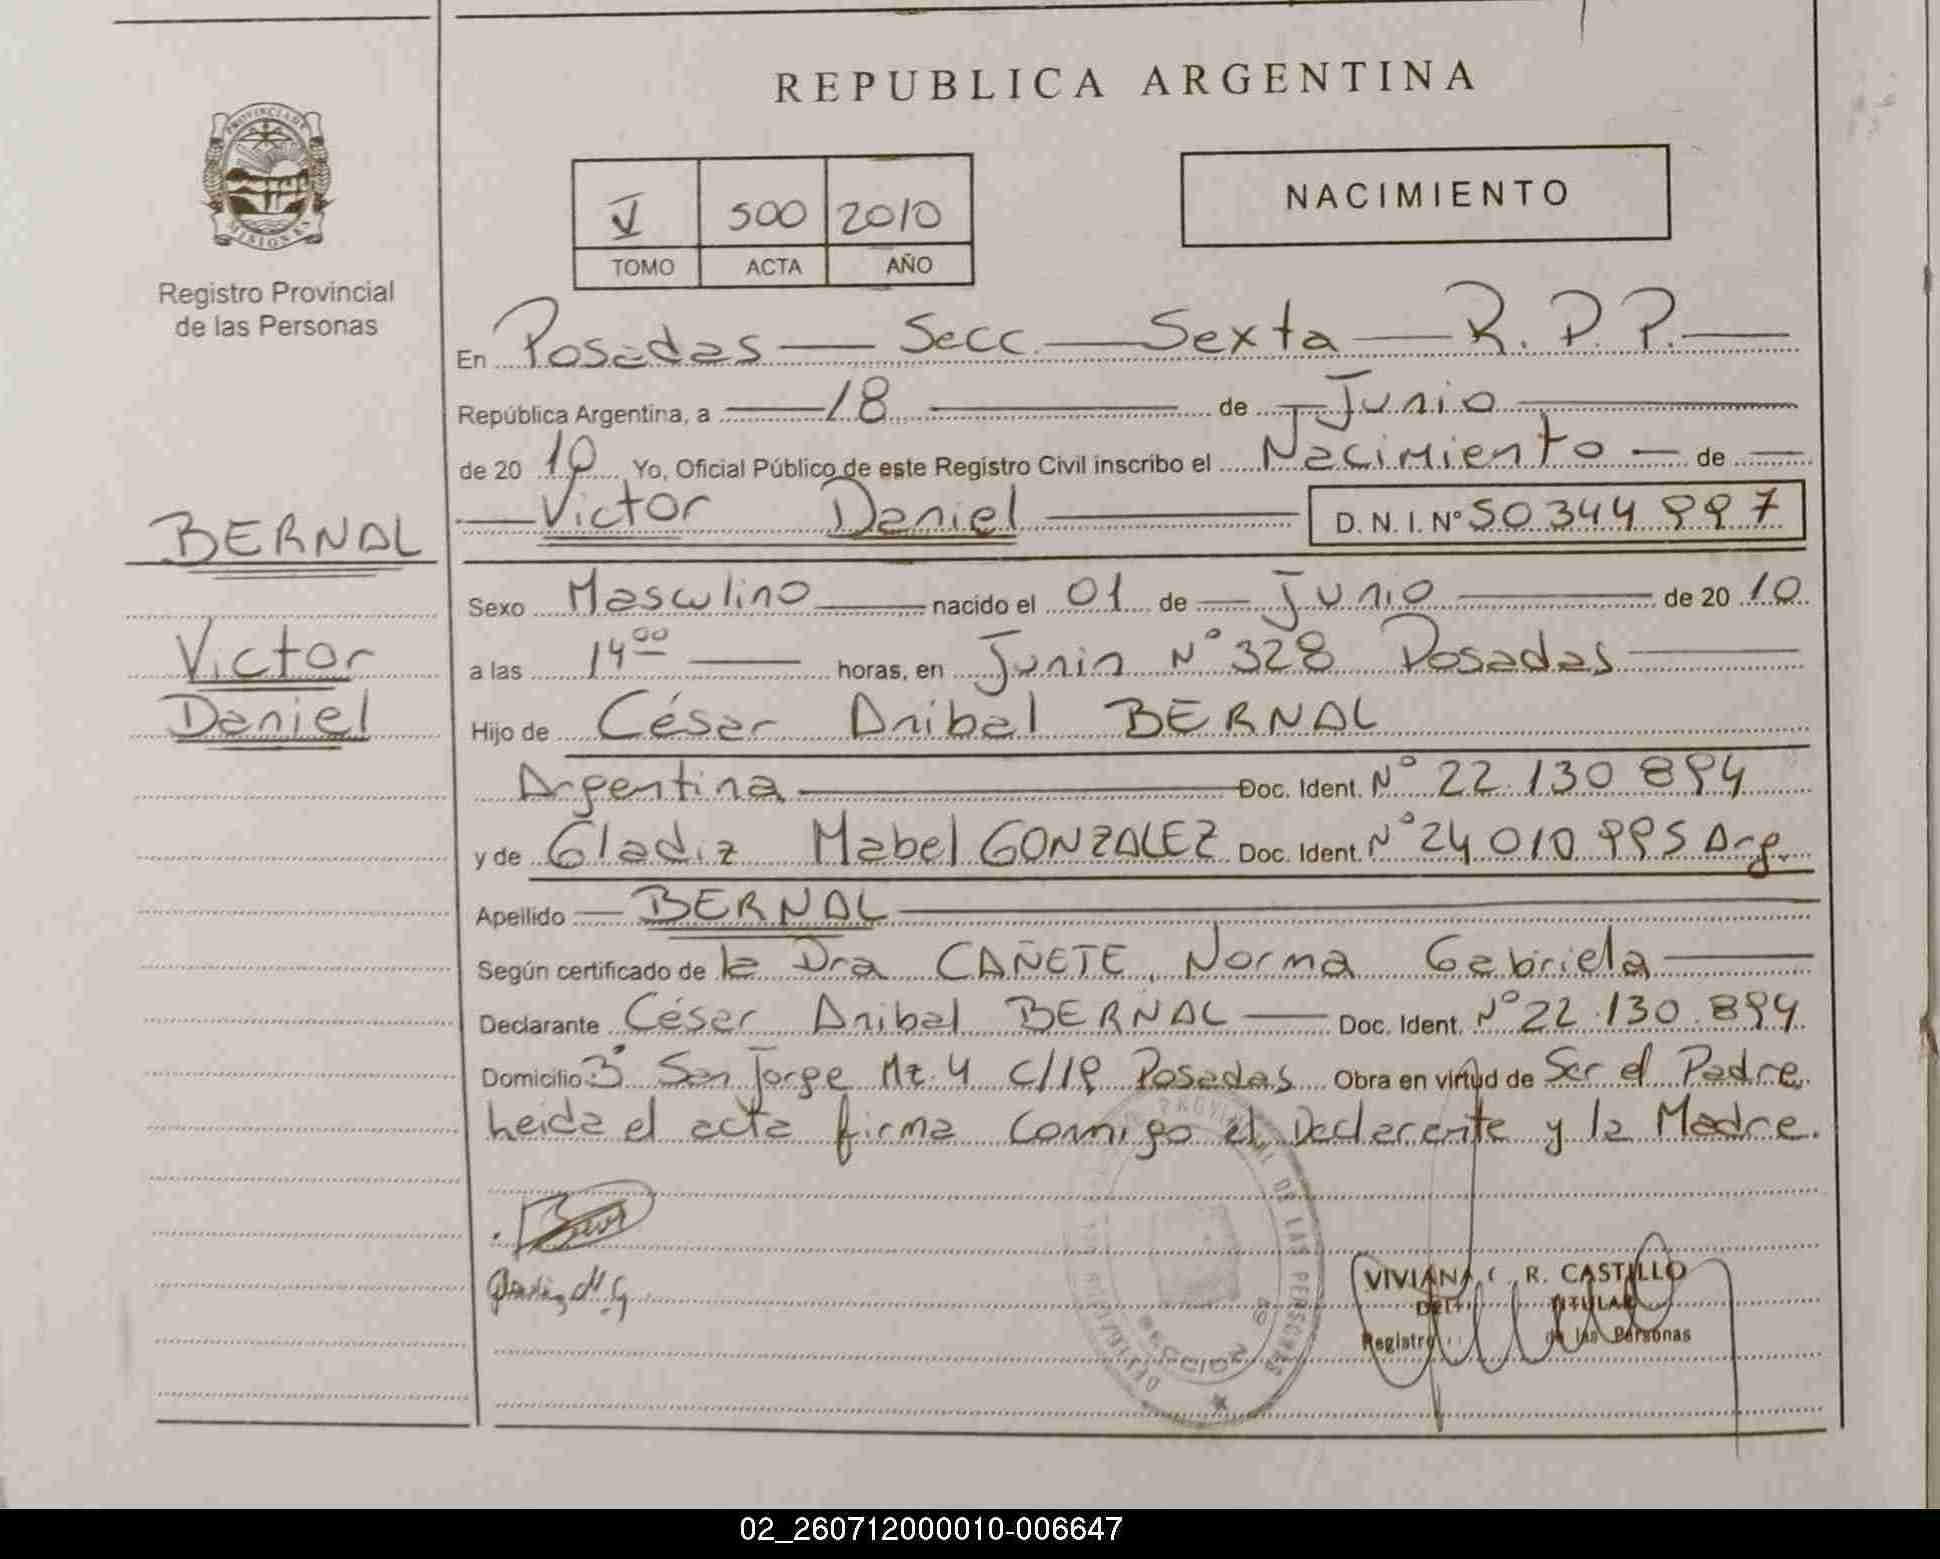 REPUBLICA ARGENTINA
PROVINCIA DE MISIONES
Registro Provincial
de las Personas
V 500 2010
TOMO ACTA AÑO
NACIMIENTO
En Posadas — Secc. — Sexta — R.P.P. —
República Argentina, a — 18 — de — Junio —
de 20 10 Yo, Oficial Público de este Registro Civil inscribo el Nacimiento — de —
— Victor Daniel — D. N. I. Nº 50 344 997
BERNAL
Victor
Daniel
Sexo Masculino — nacido el 01 de — Junio — de 20 10
a las 14 00 — horas, en Junin N° 328 Posadas —
Hijo de César Anibal BERNAL
Argentina — Doc. Ident. N° 22.130 894
y de Gladiz Mabel GONZALEZ Doc. Ident. N° 24 010 995 Arg.
Apellido — BERNAL —
Según certificado de la Dra CAÑETE, Norma Gabriela —
Declarante César Anibal BERNAL — Doc. Ident. N° 22.130.894
Domicilio San Jorge Mz. 4 C/19 Posadas Obra en virtud de Ser el Padre
heida el acta firma Conmigo el Declarante y la Madre.
PROVINCIAL DE LAS PERSONAS
SECCION
VIVIANA C. R. CASTILLO
TITULAR
Registro de las Personas
02_260712000010-006647